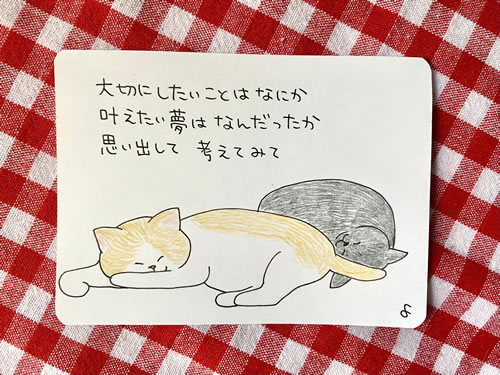 大切にしたいことは なにか
叶えたい夢は なんだったか
思い出して 考えてみて